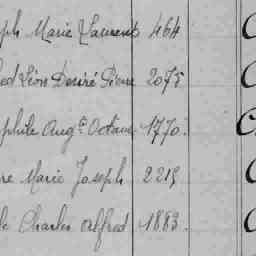 ph Marie Laurent 464
ed Léon Desiré Pierre 2075
phile Aug.te Octave 1770
re Marie Joseph 2219
le Charles Alfred 1883